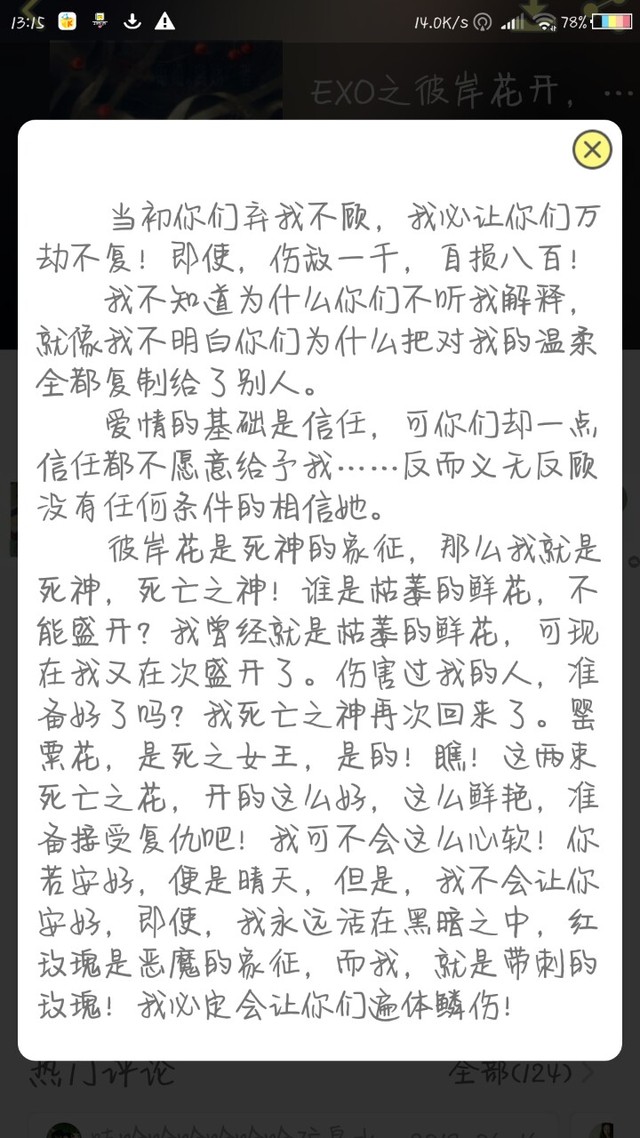 13:15
14.0K/s
78%
EXO之彼岸花开，…
当初你们弃我不顾，我必让你们万
劫不复！即使，伤敌一千，自损八百！
我不知道为什么你们不听我解释，
就像我不明白你们为什么把对我的温柔
全都复制给了别人。
爱情的基础是信任，可你们却一点
信任都不愿意给予我……反而义无反顾
没有任何条件的相信她。
彼岸花是死神的象征，那么我就是
死神，死亡之神！谁是枯萎的鲜花，不
能盛开？我曾经就是枯萎的鲜花，可现
在我又在次盛开了。伤害过我的人，准
备好了吗？我死亡之神再次回来了。罂
粟花，是死之女王，是的！瞧！这两束
死亡之花，开的这么好，这么鲜艳，准
备接受复仇吧！我可不会这么心软！你
若安好，便是晴天，但是，我不会让你
安好，即使，我永远活在黑暗之中，红
玫瑰是恶魔的象征，而我，就是带刺的
玫瑰！我必定会让你们遍体鳞伤！
热门评论
全部(124)